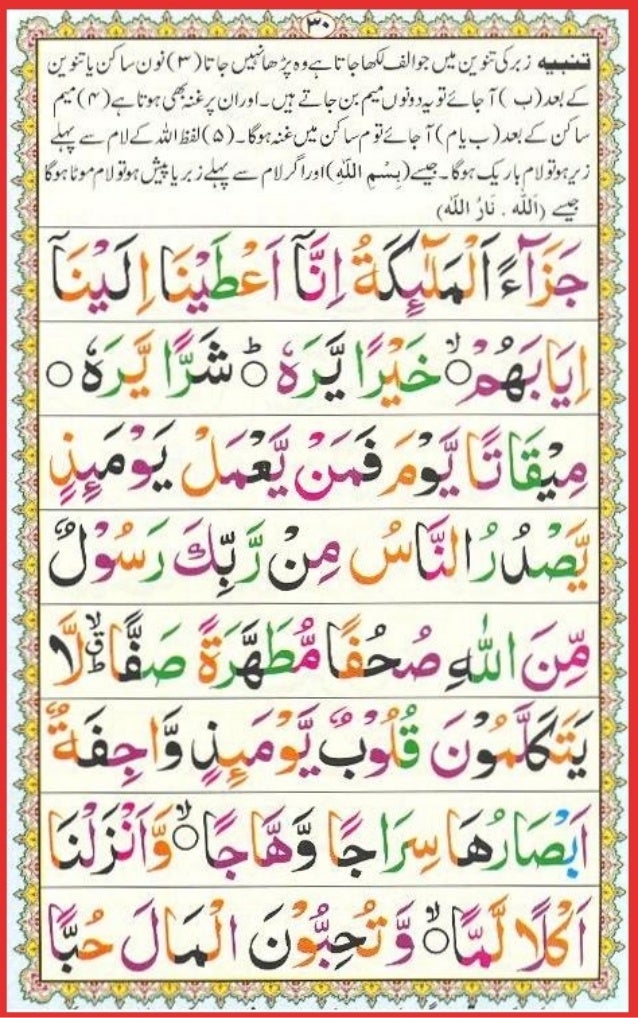 ۳۰
تنبیہ زبر کی تنوین میں جو الف لکھا جاتا ہے وہ پڑھا نہیں جاتا (۳) نون ساکن یا تنوین
کے بعد (ب) آ جائے تو یہ دونوں میم بن جاتے ہیں۔ اور ان پر غنہ بھی ہوتا ہے (۴) میم
ساکن کے بعد (ب یا م) آ جائے تو م ساکن میں غنہ ہوگا۔ (۵) لفظ اللہ کے لام سے پہلے
زیر ہو تو لام باریک ہوگا۔ جیسے (بِسْمِ اللّٰهِ) اور اگر لام سے پہلے زبر یا پیش ہو تو لام موٹا ہوگا
جیسے (اَللّٰه . نَارُ اللّٰه)
جَزَآءً اَلْمَلٰٓئِكَةُ اِنَّآ اَعْطَيْنَا اِلَيْنَآ
اِيَابَهُمْ ۙ○ خَيْرًا يَّرَهٗ ○ؕ شَرًّا يَّرَهٗ ○
مِيْقَاتًا يَّوْمَ فَمَنْ يَّعْمَلْ يَوْمَئِذٍ
يَّصْدُرُ النَّاسُ مِنْ رَّبِّكَ رَسُوْلٌ
مِّنَ اللّٰهِ صُحُفًا مُّطَهَّرَةً صَفًّا ۙق ؕ لَّا
يَتَكَلَّمُوْنَ قُلُوْبٌ يَّوْمَئِذٍ وَّاجِفَةٌ
اَبْصَارُهَا سِرَاجًا وَّهَّاجًا ○ۙ وَّاَنْزَلْنَا
اَكْلًا لَّمًّا ○ۙ وَّتُحِبُّوْنَ الْمَالَ حُبًّا